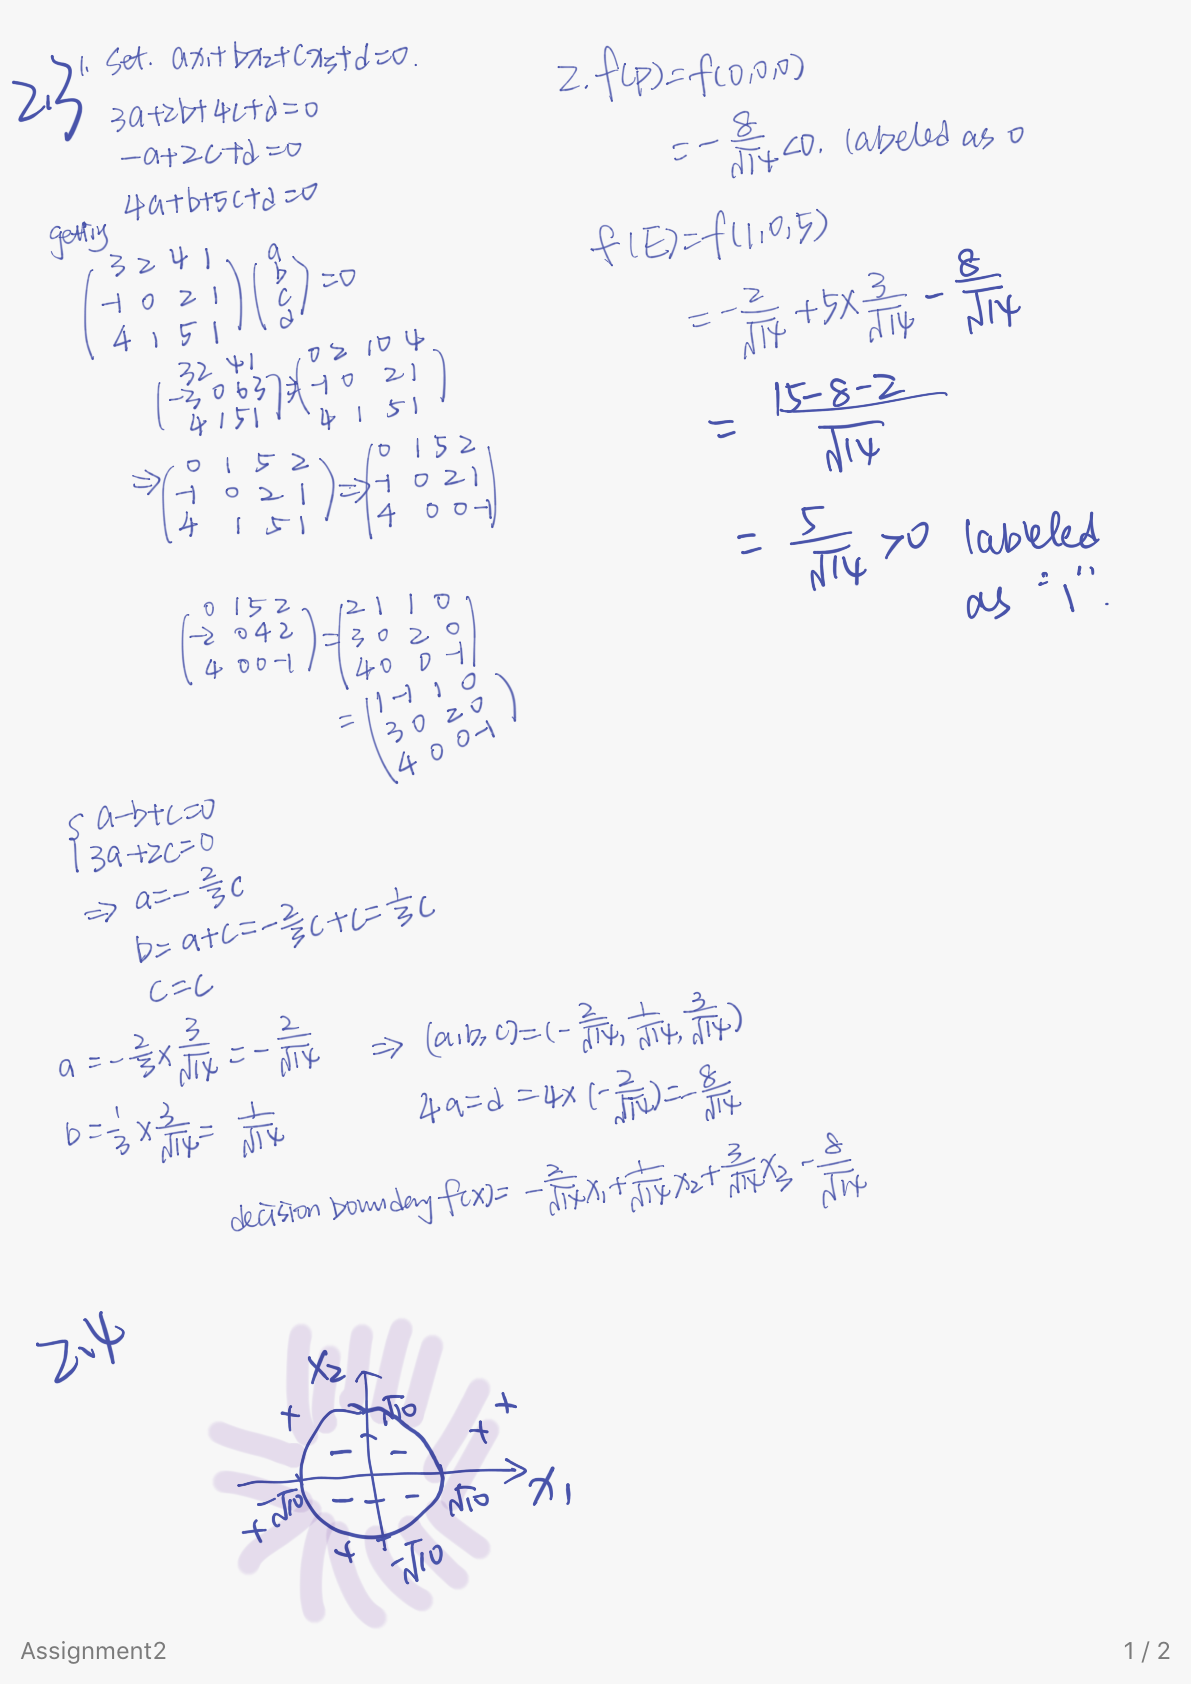 2.3
1. set. ax₁+bx₂+cx₃+d=0.
3a+2b+4c+d=0
-a+2c+d=0
4a+b+5c+d=0
getting
(3 2 4 1
-1 0 2 1
4 1 5 1) (a
b
c
d) =0
(3 2 4 1
-3 0 6 3
4 1 5 1) ⇒ (0 2 10 4
-1 0 2 1
4 1 5 1)
⇒ (0 1 5 2
-1 0 2 1
4 1 5 1) ⇒ (0 1 5 2
-1 0 2 1
4 0 0 -1)
(0 1 5 2
-2 0 4 2
4 0 0 -1) = (2 1 1 0
3 0 2 0
4 0 0 -1)
= (1 -1 1 0
3 0 2 0
4 0 0 -1)
{ a-b+c=0
3a+2c=0
⇒ a=-2/3 c
b=a+c=-2/3 c+c=1/3 c
c=c
a = -2/3 × 3/√14 = -2/√14 ⇒ (a,b,c)=(-2/√14, 1/√14, 3/√14)
b = 1/3 × 3/√14 = 1/√14
4a=d =4×(-2/√14)=-8/√14
decision boundary f(x)= -2/√14 x₁+1/√14 x₂+3/√14 x₃ -8/√14
2. f(p)=f(0,0,0)
= -8/√14 <0. labeled as 0
f(E)=f(1,0,5)
= -2/√14 +5×3/√14 - 8/√14
= 15-8-2/√14
= 5/√14 >0 labeled
as "1".
2.4
x₂
√10
+ + +
- -
x₁
-√10
√10
- - -
+ +
-√10
Assignment2
1 / 2